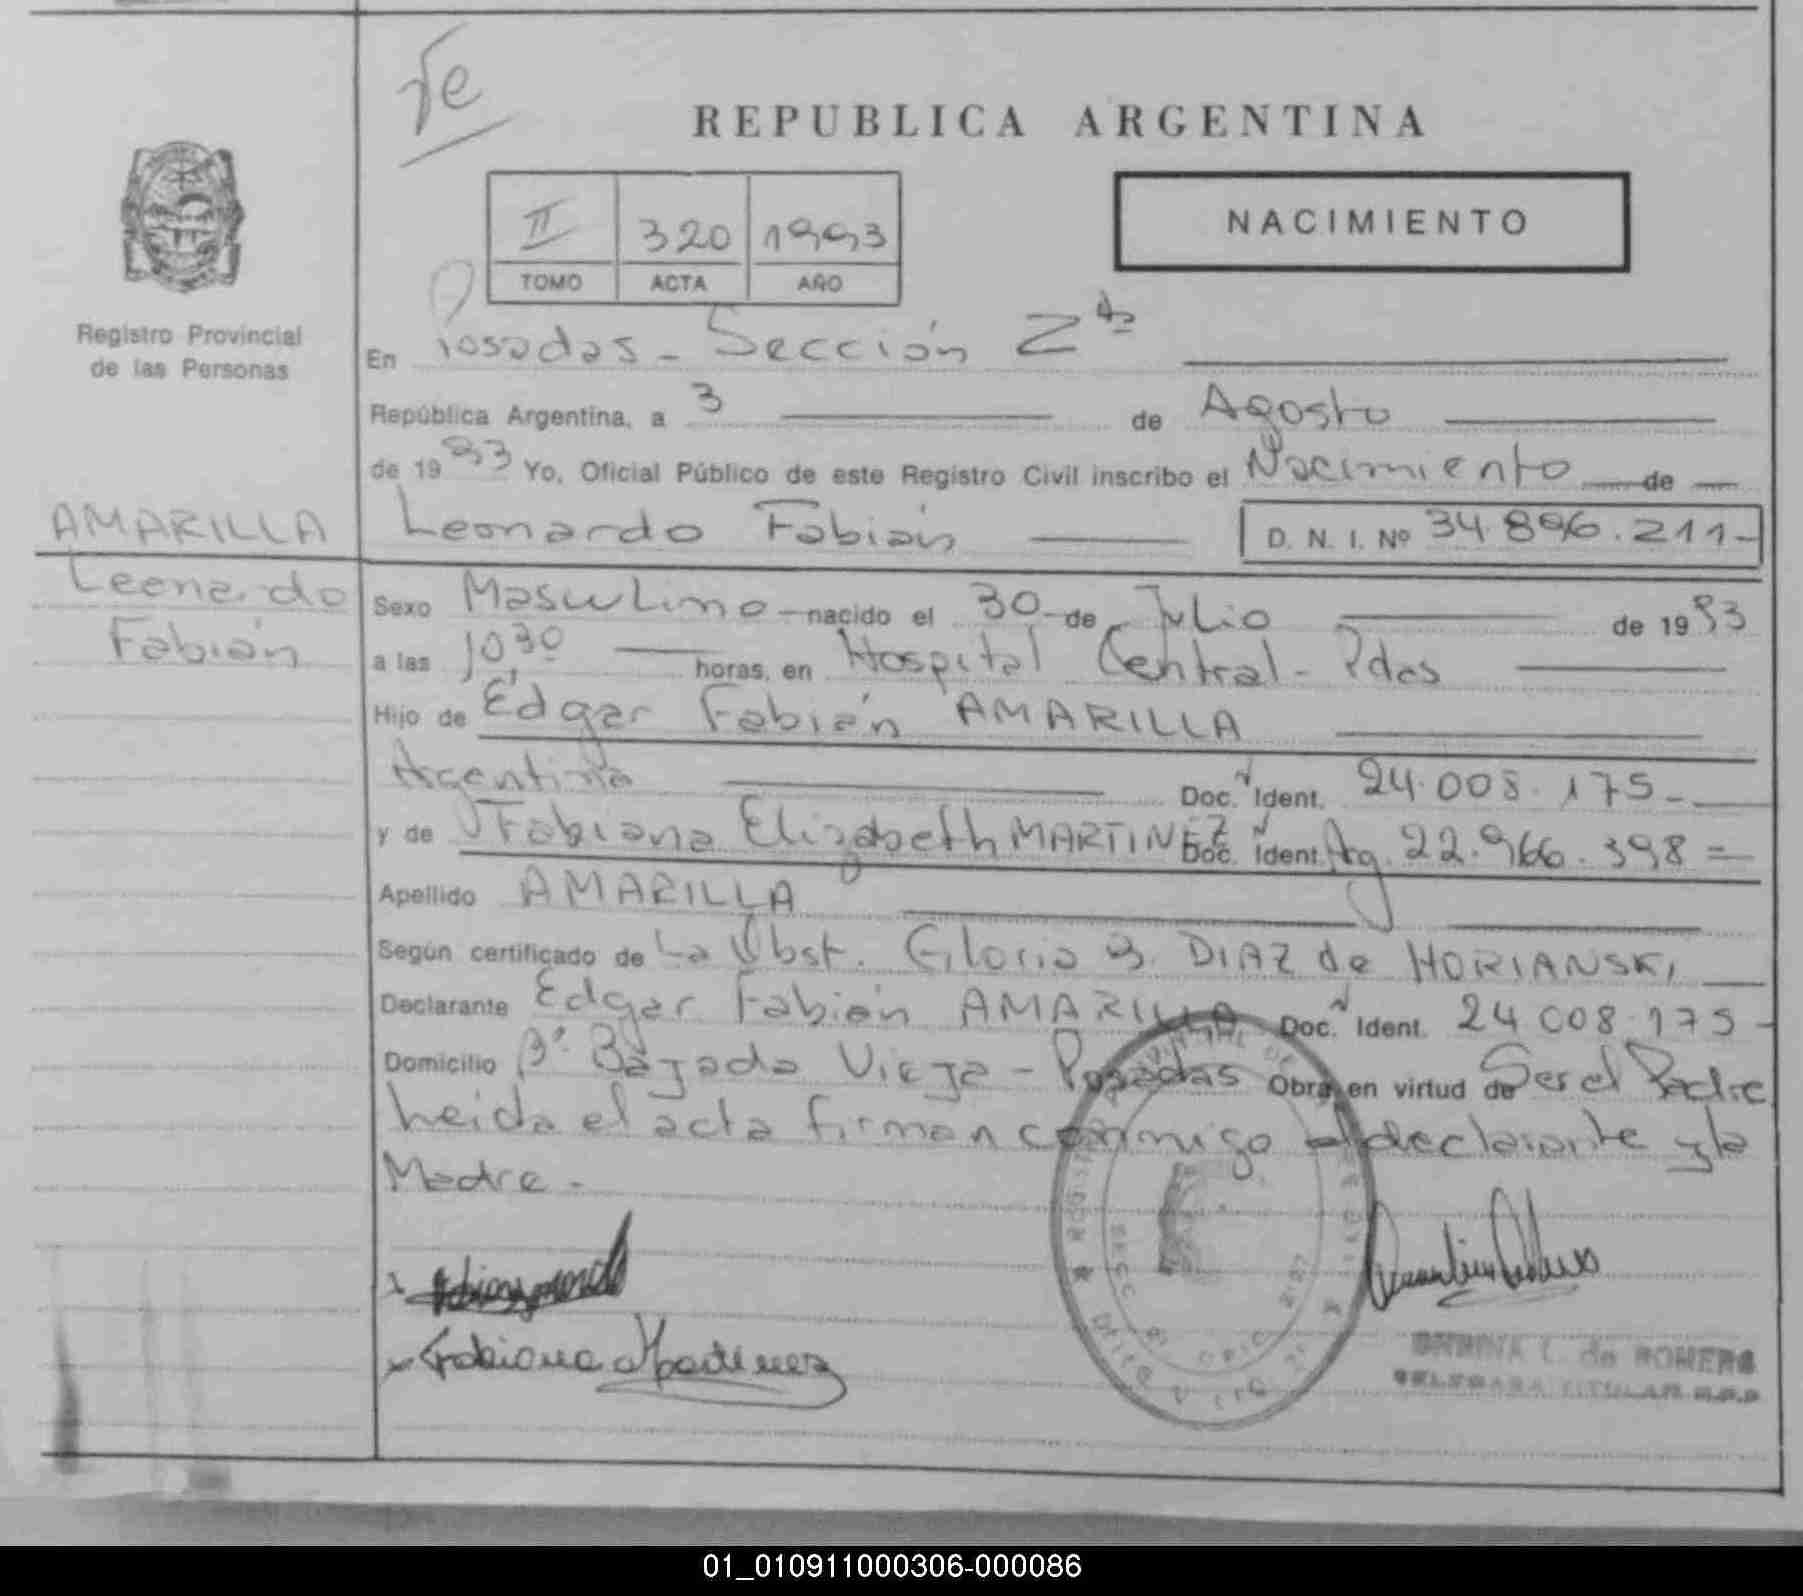 REPUBLICA ARGENTINA
NACIMIENTO
II 320 1993
TOMO ACTA AÑO
Registro Provincial
de las Personas
En Posadas - Sección 2da
República Argentina, a 3 de Agosto
de 1993 Yo, Oficial Público de este Registro Civil inscribo el Nacimiento de
AMARILLA
Leonardo
Fabián
Leonardo Fabián D. N. I. Nº 34.896.211-
Sexo Masculino nacido el 30 de Julio de 1993
a las 10,30 horas, en Hospital Central - Pdas
Hijo de Edgar Fabián AMARILLA
Argentina Doc. Ident. 24.008.175-
y de Fabiana Elizabeth MARTINEZ Doc. Ident. Ag. 22.966.398=
Apellido AMARILLA
Según certificado de La Obst. Gloria DIAZ de HORIANSKI
Declarante Edgar Fabián AMARILLA Doc. Ident. 24 008.175-
Domicilio Bº Bajada Vieja - Posadas Obra en virtud de Ser el Padre
Leida el acta firman conmigo el declarante y la
Madre.-
Fabiana Martinez
L. de ROMERO
TITULAR
01_010911000306-000086